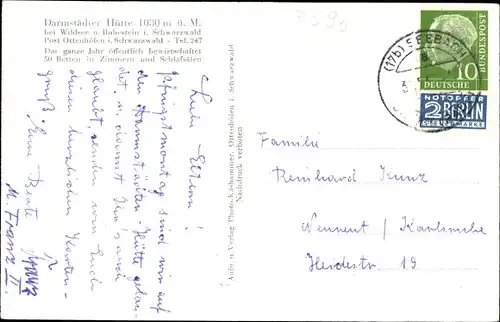 Darmstädter Hütte 1030 m ü. M.
bei Wildsee u. Ruhestein i. Schwarzwald
Post Ottenhöfen i. Schwarzwald - Tel. 247
Das ganze Jahr öffentlich bewirtschaftet
50 Betten in Zimmern und Schlafsälen
Liebe Eltern!
Pfingstmontag sind wir auf
der Darmstädter-Hütte gelan-
det u. damit Ihr's auch
glaubt, senden wir Euch
diesen herzlichen Karten-
gruß. Eure Beate
u. Franz II.
Aufn. u. Verlag Photo-Käshammer, Ottenhöfen i. Schwarzwald
Nachdruck verboten
(17b) SEEBACH
10
DEUTSCHE
BUNDESPOST
NOTOPFER
2 BERLIN
STEUERMARKE
Familie
Reinhard Kunz
Neureut / Karlsruhe
Heidestr. 19